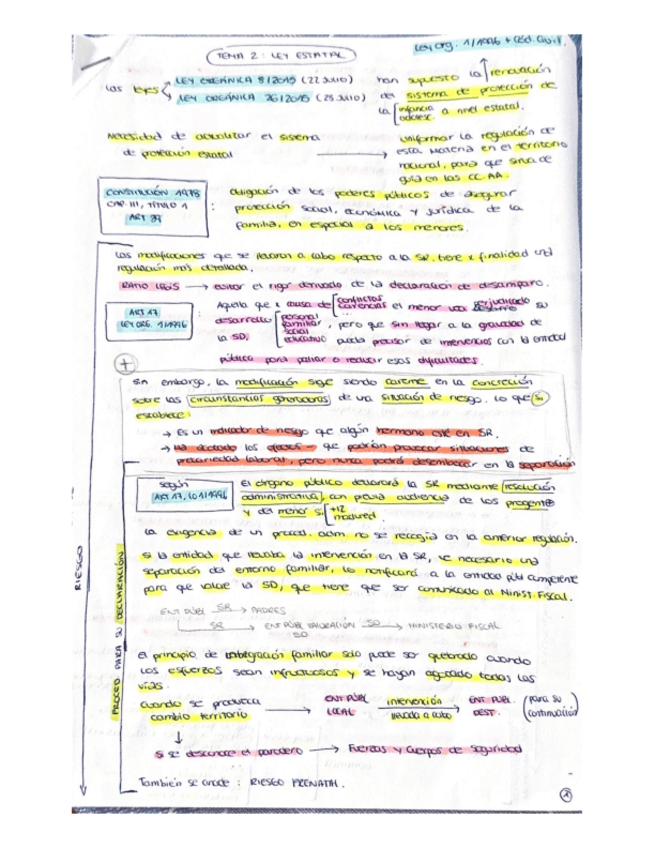 Ley Org. 1/1996 + Cód. Civil.
TEMA 2: LEY ESTATAL
Las leyes
LEY ORGÁNICA 8/2015 (22 JULIO)
LEY ORGÁNICA 26/2015 (28 JULIO)
han supuesto la renovación
del sistema de protección de
la infancia adolesc. a nivel estatal.
Necesidad de actualizar el sistema
de protección estatal
uniformar la regulación de
esta materia en el territorio
nacional, para que sirva de
guía en las CC.AA.
CONSTITUCIÓN 1978
CAP. III, TÍTULO 1
ART 39
: obligación de los poderes públicos de asegurar
protección social, económica y jurídica de la
familia, en especial a los menores.
Las modificaciones que se llevaron a cabo respecto a la SR, tiene x finalidad una
regulación más detallada.
RATIO LEGIS → evitar el rigor derivado de la declaración de desamparo.
ART 17
LEY ORG. 1/1996
: Aquella que x causa de conflictos carencias el menor vea perjudicado su
desarrollo personal familiar social educativo, pero que sin llegar a la gravedad de
la SD, pueda precisar de intervención con la entidad
pública para paliar o reducir esas dificultades.
+
Sin embargo, la modificación sigue siendo carente en la concreción
sobre las circunstancias generadoras de una situación de riesgo. Lo que sí
establece:
→ Es un indicador de riesgo que algún hermano esté en SR.
→ los efectos que podrían provocar situaciones de
precariedad laboral, pero nunca podrá desembocar en la separación
según
ART 17, LO 1/1996
El órgano público declarará la SR mediante resolución
administrativa, con previa audiencia de los progenit@
y del menor si +12 madured
La exigencia de un proced. adm no se recogía en la anterior regulación.
Si la entidad que llevaba la intervención en la SR, ve necesario una
separación del entorno familiar, lo notificará a la entidad púb competente
para que valore la SD, que tiene que ser comunicado al Minist. Fiscal.
ENT PÚBL SR → PADRES
SR → ENT PÚBL VALORACIÓN SD SD → MINISTERIO FISCAL
El principio de integración familiar solo puede ser quebrado cuando
los esfuerzos sean infructuosos y se hayan agotado todas las
vías.
Cuando se produzca
cambio territorio
→ ENT PÚBL LOCAL intervención llevada a cabo → ENT PÚBL. DEST. (para su continuación)
↓
Si se desconoce el paradero → Fuerzas y Cuerpos de Seguridad
También se añade: RIESGO PRENATAL.
RIESGO
PROCED. PARA SU DECLARACIÓN
1